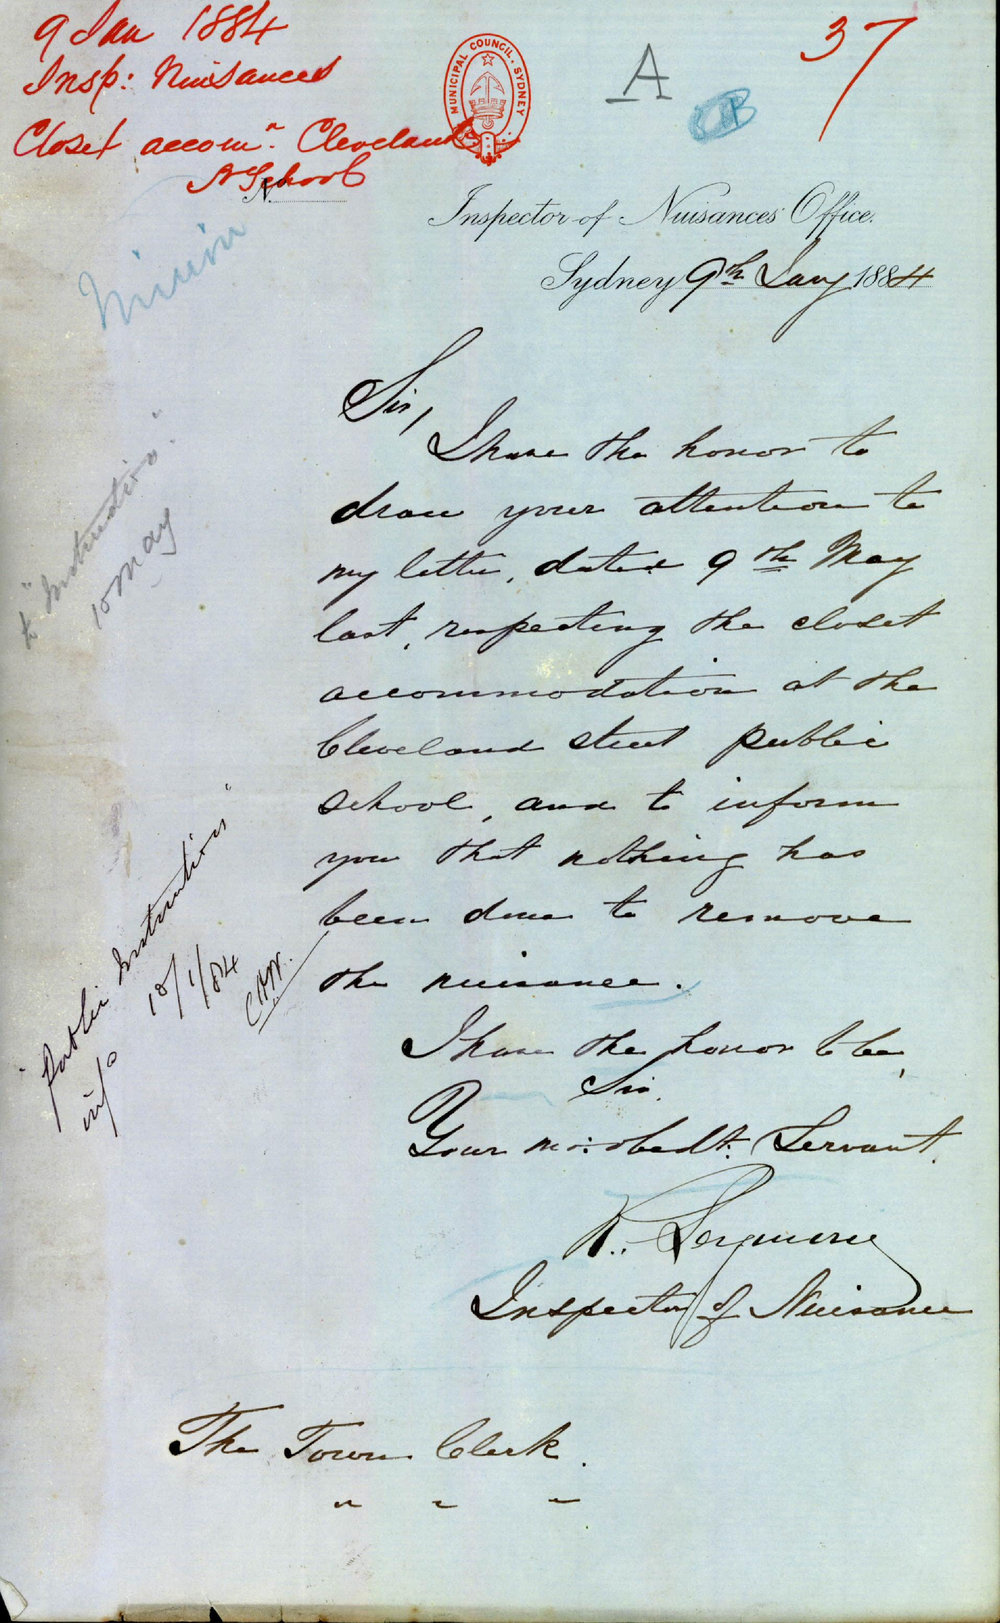 9 Jan 1884
Insp: Nuisances
Closet accomn. Cleveland
St School
MUNICIPAL COUNCIL. SYDNEY
A
37
N.
Inspector of Nuisances Office.
Sydney 9th Jany 1884
Minin
Sir,
I have the honor to
draw your attention to
my letter, dated 9th May
last, respecting the closet
accommodation at the
Cleveland street public
school, and to inform
you that nothing has
been done to remove
the nuisance.
I have the honor to be,
Sir.
Your mo: obedt: Servant.
R. Seymour
Inspector of Nuisance
"Instruction"
10 May
"Public Instruction"
10/1/84
The Town Clerk.
" " "